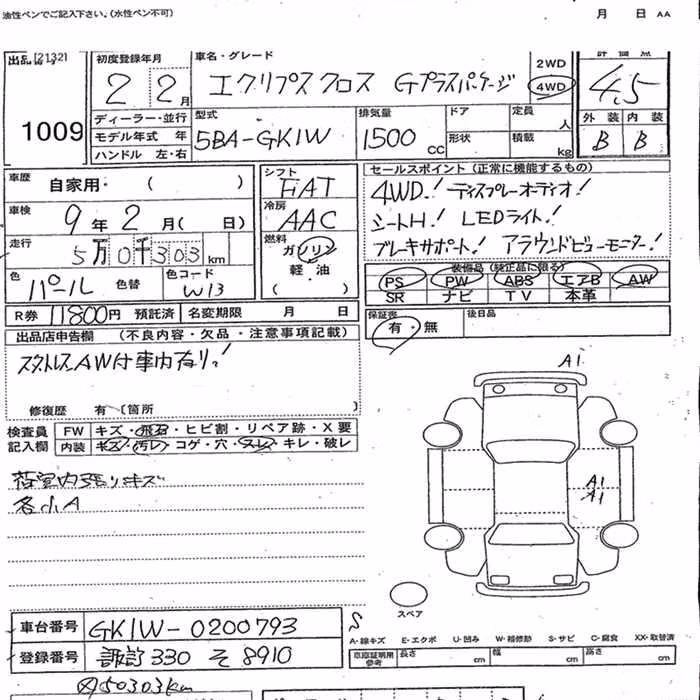 油性ペンでご記入下さい。(水性ペン不可) 月 日 AA
出品 [2132]
1009
初度登録年月
2 2月
車名・グレード
エクリプスクロス Gプラスパッケージ
2WD
4WD
評価点
4.5
ディーラー・並行
モデル年式 年
ハンドル 左・右
型式
5BA-GK1W
排気量
1500 cc
ドア
形状
定員 人
積載 kg
外装 内装
B B
車歴 自家用・( )
車検 9年2月( 日)
走行 5万0千303km
色 パール 色替
色コード W13
シフト
FAT
冷房
AAC
燃料
ガソリン
軽・油
( )
セールスポイント(正常に機能するもの)
4WD! ディスプレーオーディオ!
シートH! LEDライト!
ブレーキサポート! アラウンドビューモニター!
装備品(純正品に限る)
PS PW ABS エアB AW
SR ナビ TV 本革
R券 11800円 預託済 名変期限 月 日
保証書
有・無
後日品
出品店申告欄 (不良内容・欠品・注意事項記載)
スタットレスAW付車内有り!
修復歴 有 〔箇所
検査員記入欄
FW キズ・飛石・ヒビ割・リペア跡・X要
内装 キズ・汚レ・コゲ・穴・スレ・キレ・破レ
荷室内張りキズ
各小A
A1
A1
A1
スペア
車台番号 GK1W-0200793
登録番号 諏訪 330 そ 8910
S
A-線キズ E-エクボ U-凹み W-補修跡 S-サビ C-腐食 XX-取替済
車庫証明用参考 長さ cm 幅 cm 高さ cm
50303km